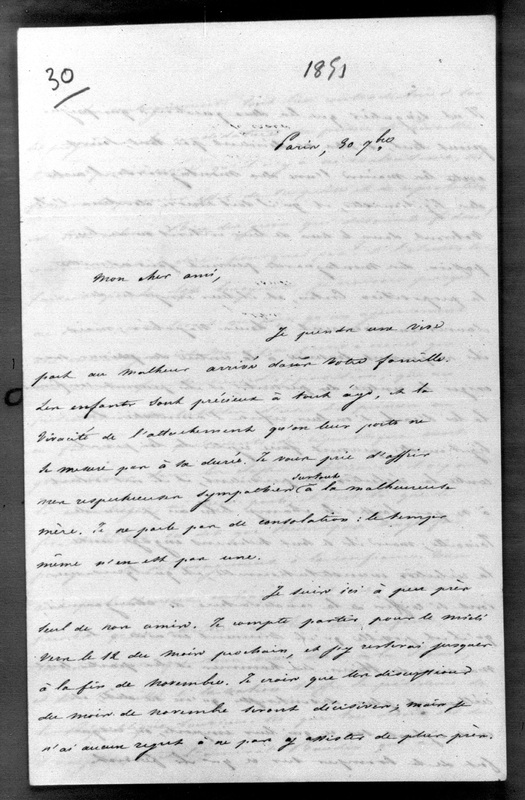 30
1851
Paris, 30 7bre
Mon cher ami,
Je prends une vive
part au malheur arrivé dans votre famille.
Les enfants sont précieux à tout âge, et la
vivacité de l'attachement qu'on leur porte ne
se mesure pas à sa durée. Je vous prie d'offrir
mes respectueuses sympathies surtout à la malheureuse
mère. Je ne parle pas de consolation : le temps
même n'en est pas une.
Je suis ici à peu près
seul de nos amis. Je compte partir pour le midi
vers le 12 du mois prochain, et j'y resterai jusques
à la fin de Novembre. Je crois que les discussions
du mois de novembre seront décisives ; mais je
n'ai aucun regret à ne pas y assister de plus près.